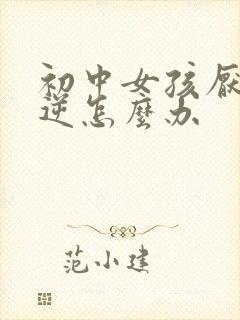 初中女孩厌
逆怎麽办
范小建